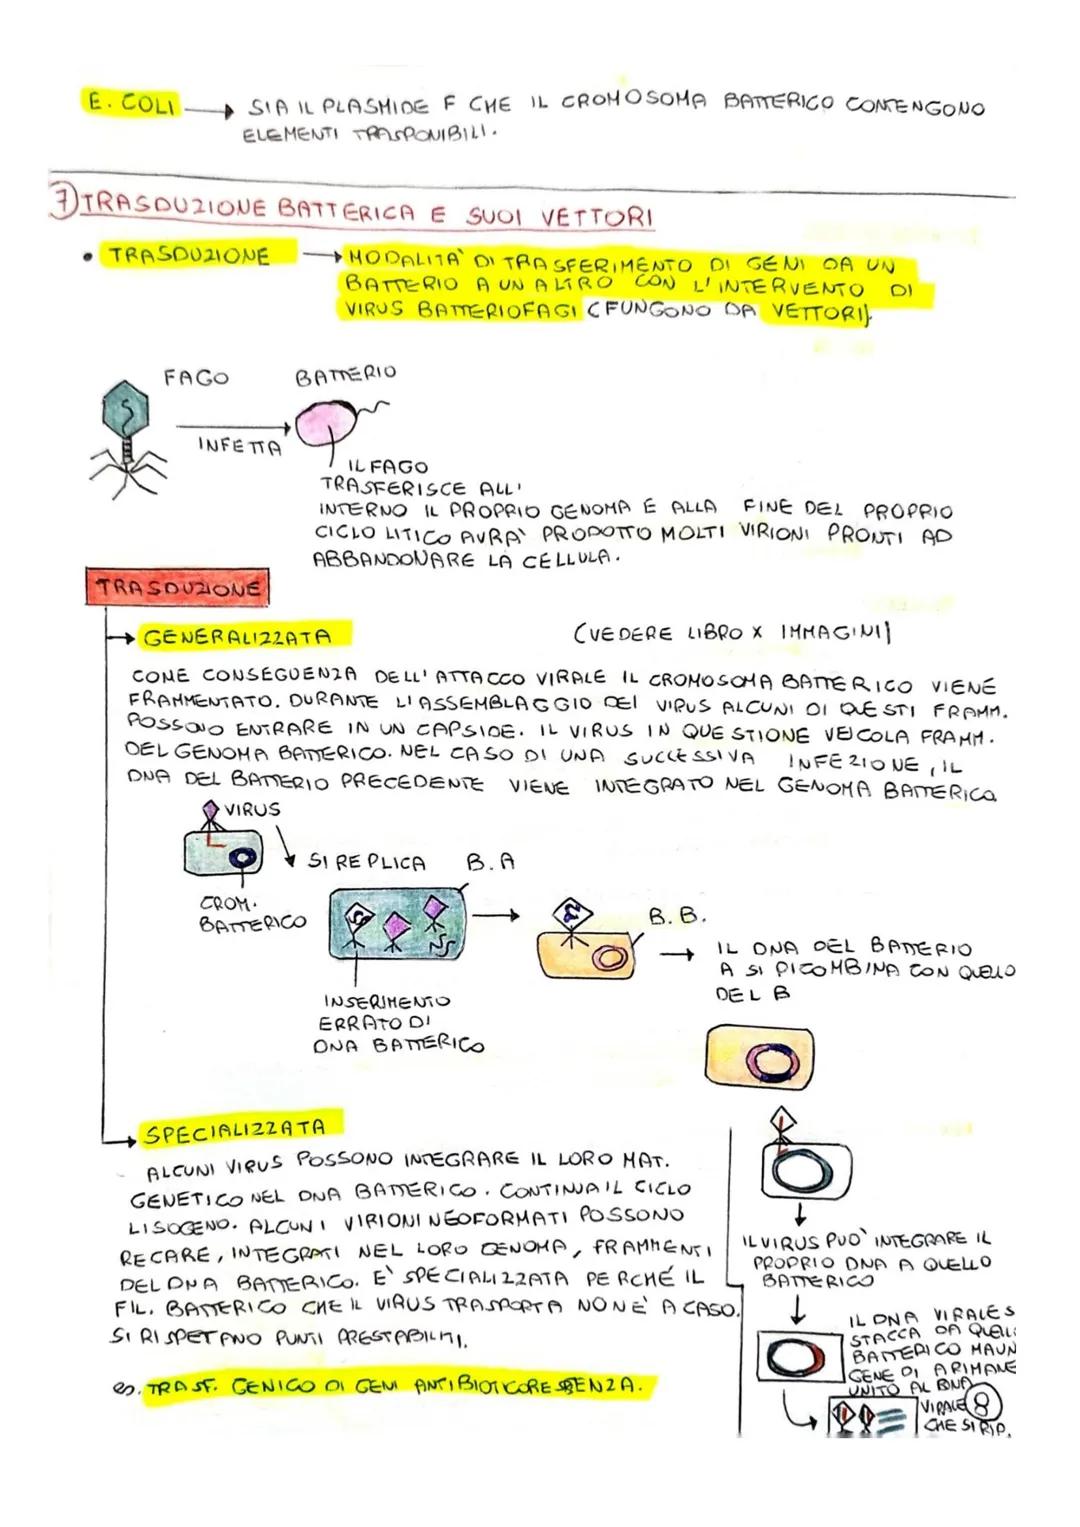 E. COLI → SIA IL PLASMIDE F CHE IL CROMOSOMA BATTERICO CONTENGONO
ELEMENTI TRASPONIBILI.
7) TRASDUZIONE BATTERICA E SUOI VETTORI
• TRASDUZIONE → MODALITA' DI TRASFERIMENTO DI GENI DA UN
BATTERIO A UN ALTRO CON L'INTERVENTO DI
VIRUS BATTERIOFAGI (FUNGONO DA VETTORI).
FAGO BATTERIO
INFETTA
IL FAGO
TRASFERISCE ALL'
INTERNO IL PROPRIO GENOMA E ALLA FINE DEL PROPRIO
CICLO LITICO AVRA' PRODOTTO MOLTI VIRIONI PRONTI AD
ABBANDONARE LA CELLULA.
TRASDUZIONE
→ GENERALIZZATA (VEDERE LIBRO X IMMAGINI)
COME CONSEGUENZA DELL'ATTACCO VIRALE IL CROMOSOMA BATTERICO VIENE
FRAMMENTATO. DURANTE L'ASSEMBLAGGIO DEI VIRUS ALCUNI DI QUESTI FRAMM.
POSSONO ENTRARE IN UN CAPSIDE. IL VIRUS IN QUESTIONE VEICOLA FRAMM.
DEL GENOMA BATTERICO. NEL CASO DI UNA SUCCESSIVA INFEZIONE, IL
DNA DEL BATTERIO PRECEDENTE VIENE INTEGRATO NEL GENOMA BATTERICO
VIRUS
SI REPLICA B.A
CROM.
BATTERICO
B.B.
→ IL DNA DEL BATTERIO
A SI RICOMBINA CON QUELLO
DEL B
INSERIMENTO
ERRATO DI
DNA BATTERICO
→ SPECIALIZZATA
ALCUNI VIRUS POSSONO INTEGRARE IL LORO MAT.
GENETICO NEL DNA BATTERICO. CONTINUA IL CICLO
LISOGENO. ALCUNI VIRIONI NEOFORMATI POSSONO
RECARE, INTEGRATI NEL LORO GENOMA, FRAMMENTI
DEL DNA BATTERICO. E' SPECIALIZZATA PERCHÉ IL
FIL. BATTERICO CHE IL VIRUS TRASPORTA NON E' A CASO.
SI RISPETANO PUNTI PRESTABILITI.
es. TRASF. GENICO DI GENI ANTIBIOTICORESISTENZA.
IL VIRUS PUO' INTEGRARE IL
PROPRIO DNA A QUELLO
BATTERICO
IL DNA VIRALE S
STACCA DA QUELL
BATTERICO MA UN
GENE DI A RIMANE
UNITO AL DNA
VIRALE
CHE SI RIP.
8